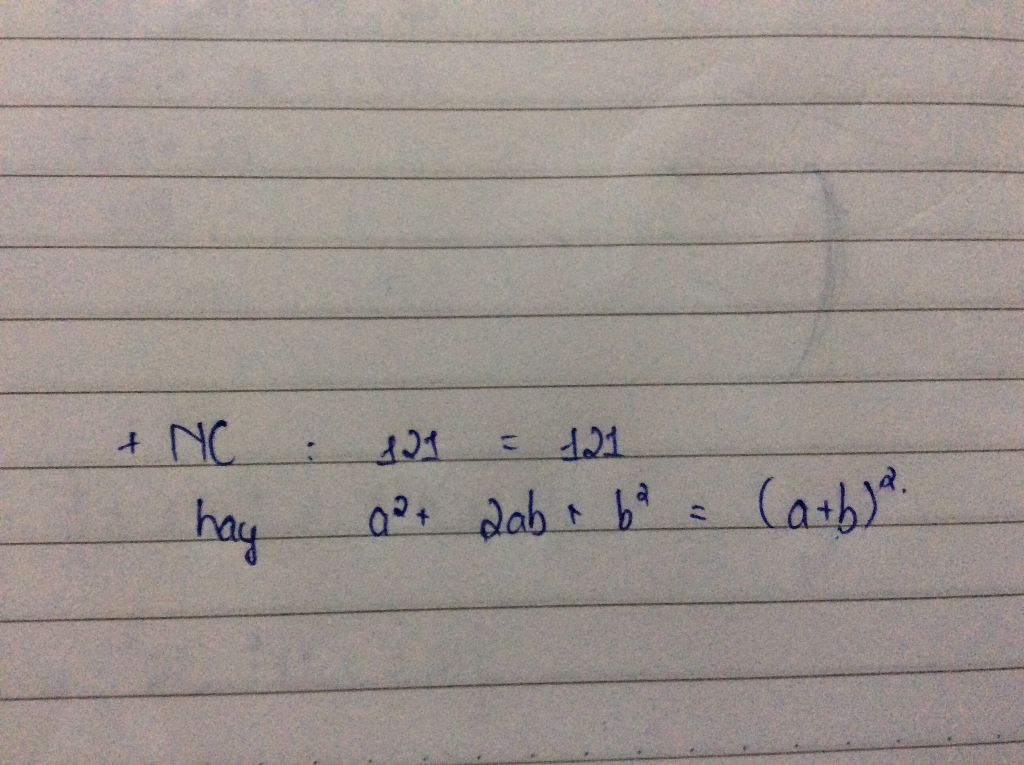 + NC : 121 = 121
hay a² + 2ab + b² = (a+b)².